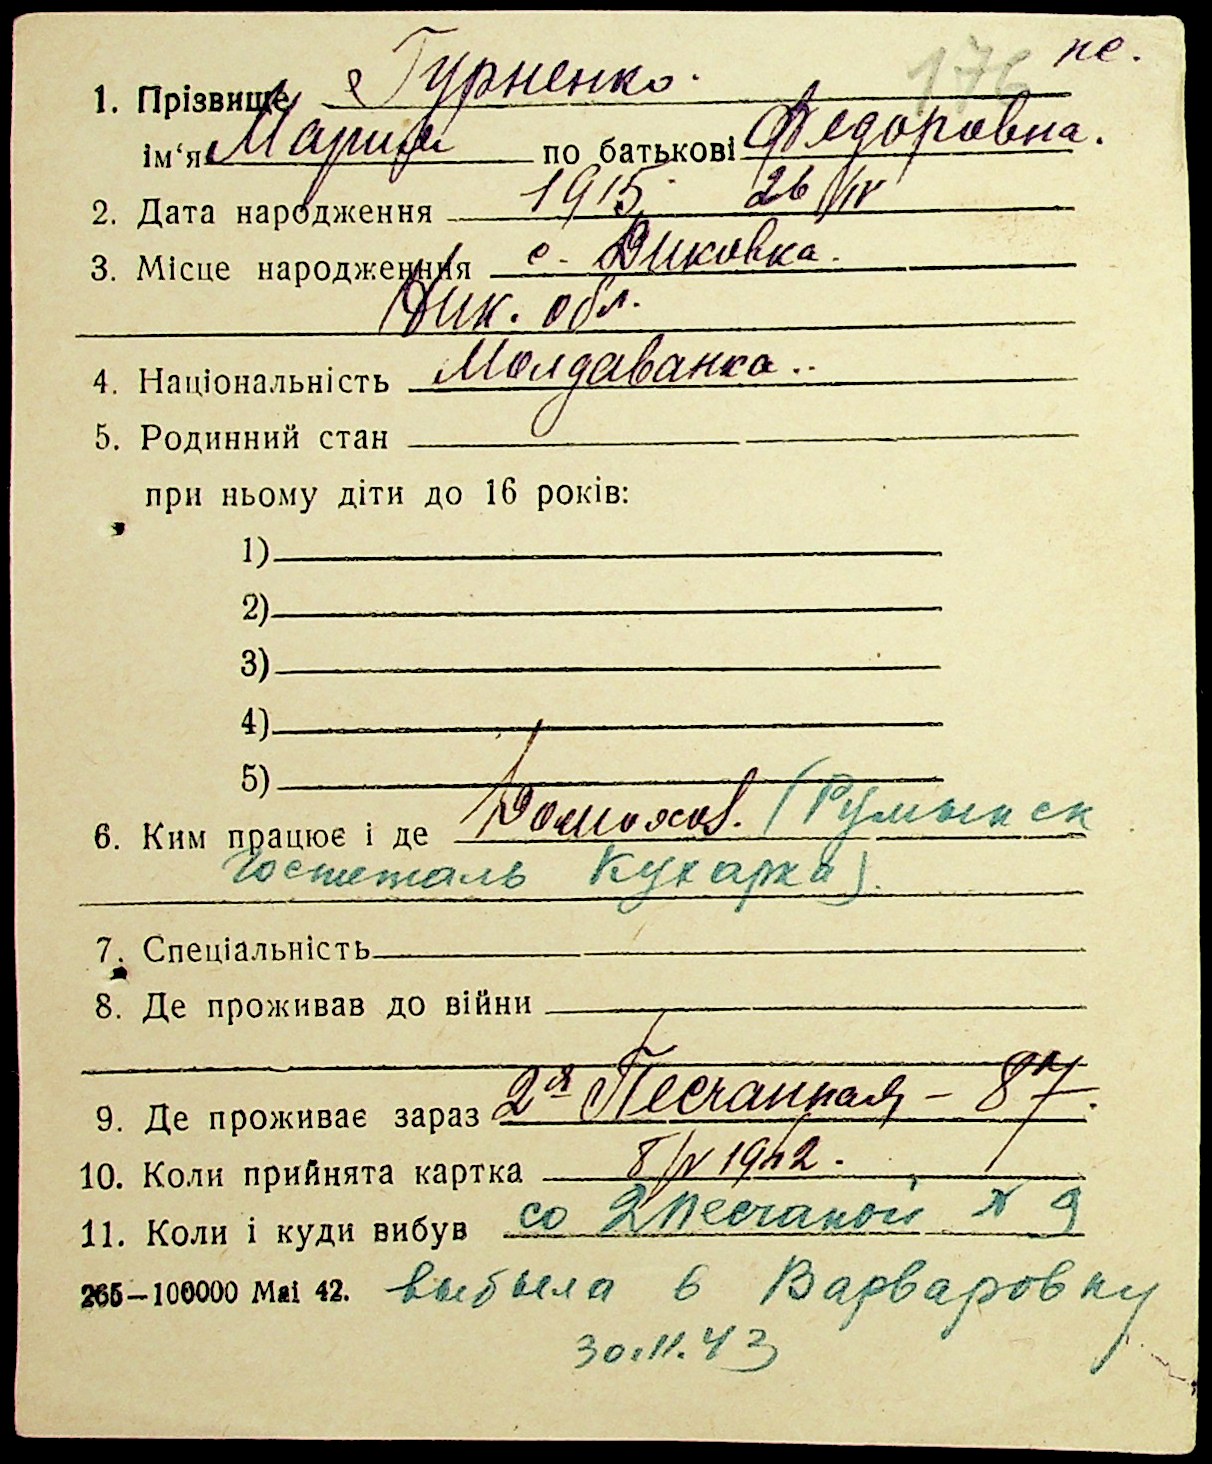 176 не.
1. Прізвище Гурненко.
ім‘я Мария по батькові Федоровна.
2. Дата народження 1915. 26/IV
3. Місце народженння с. Диковка.
Ник. обл.
4. Національність Молдаванка..
5. Родинний стан
при ньому діти до 16 років:
1)
2)
3)
4)
5)
6. Ким працює і де Домохоз. (Румынск
Госпеталь Кухарка).
7. Спеціальність
8. Де проживав до війни
9. Де проживає зараз 2я Песчанная – 87.
10. Коли прийнята картка 1942.
11. Коли і куди вибув со 2 Песчаной № 9
265—100000 Маі 42. выбыла в Варваровку
30.11.43